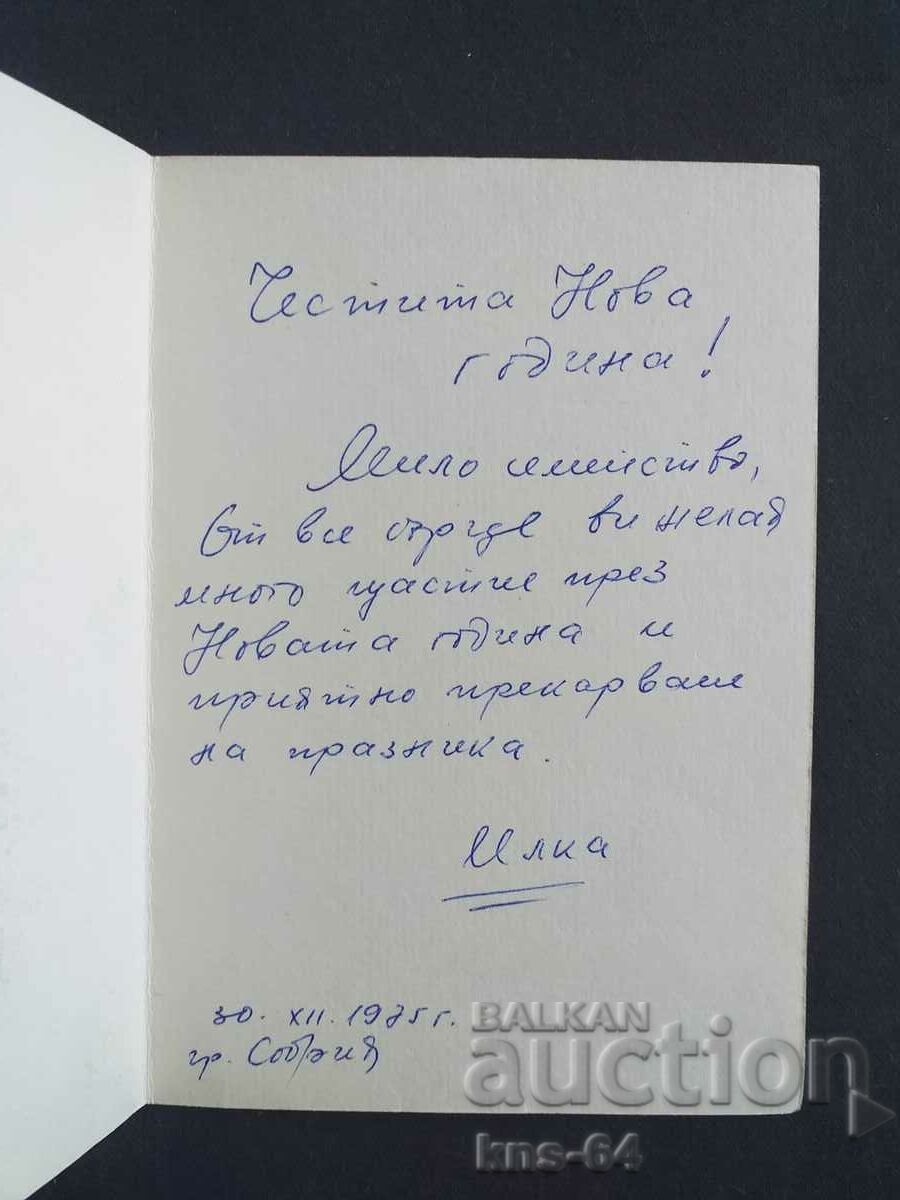 Честита Нова
година!
Мило семейство,
От все сърце ви желая
много щастие през
Новата година и
приятно прекарване
на празника.
Илка
30. XII. 1975 г.
гр. София
BALKAN
auction
kns-64